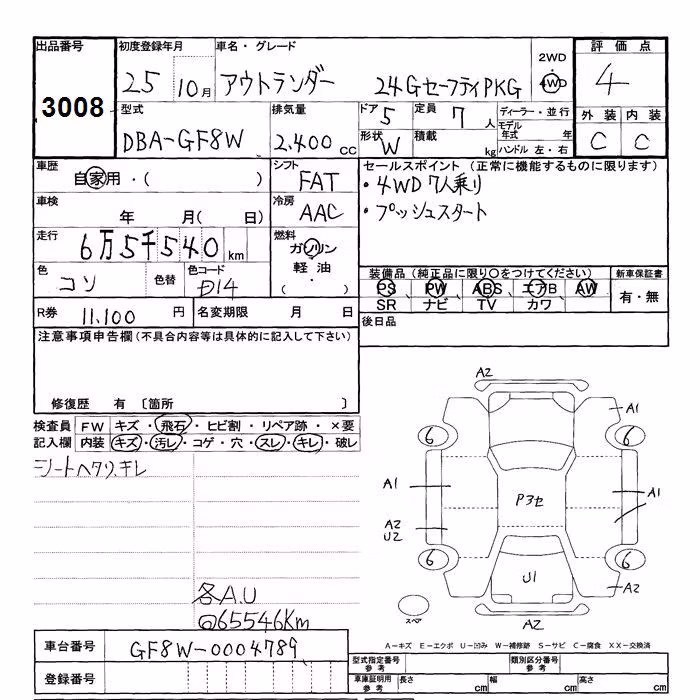 出品番号 初度登録年月 車名・グレード 2WD 評価点
3008 25 10月 アウトランダー 24GセーフティPKG 4WD 4
型式 排気量 ドア 5 定員 7 人 ディーラー・並行 外装 内装
DBA-GF8W 2.400 CC 形状 W 積載 kg モデル年式 年 C C
ハンドル 左・右
車歴 シフト セールスポイント (正常に機能するものに限ります)
自家用・( ) FAT ・4WD 7人乗り
車検 冷房 ・プッシュスタート
年 月( 日) AAC
走行 6万5千540 km 燃料
ガソリン
色 色替 色コード 軽油・ 装備品 (純正品に限り○をつけてください) 新車保証書
コン D14 ( ) PS PW ABS エアB AW 有・無
SR ナビ TV カワ
R券 11.100 円 名変期限 月 日 後日品
注意事項申告欄 (不具合内容等は具体的に記入して下さい)
修復歴 有 〔箇所 〕
検査員 FW キズ・飛石・ヒビ割・リペア跡・×要
記入欄 内装 キズ・汚レ・コゲ・穴・スレ・キレ・破レ
シートヘタリ、キレ
各A.U
@65546Km
A2
A1
6 6
A1 P3セ A1
A2
U2
6 6
U1 A2
スペア A2
A-キズ E-エクボ U-凹み W-補修跡 S-サビ C-腐食 XX-交換済
車台番号 GF8W-0004789
型式指定番号 参考 類別区分番号 参考
登録番号 車庫証明用 参考 長さ cm 幅 cm 高さ cm